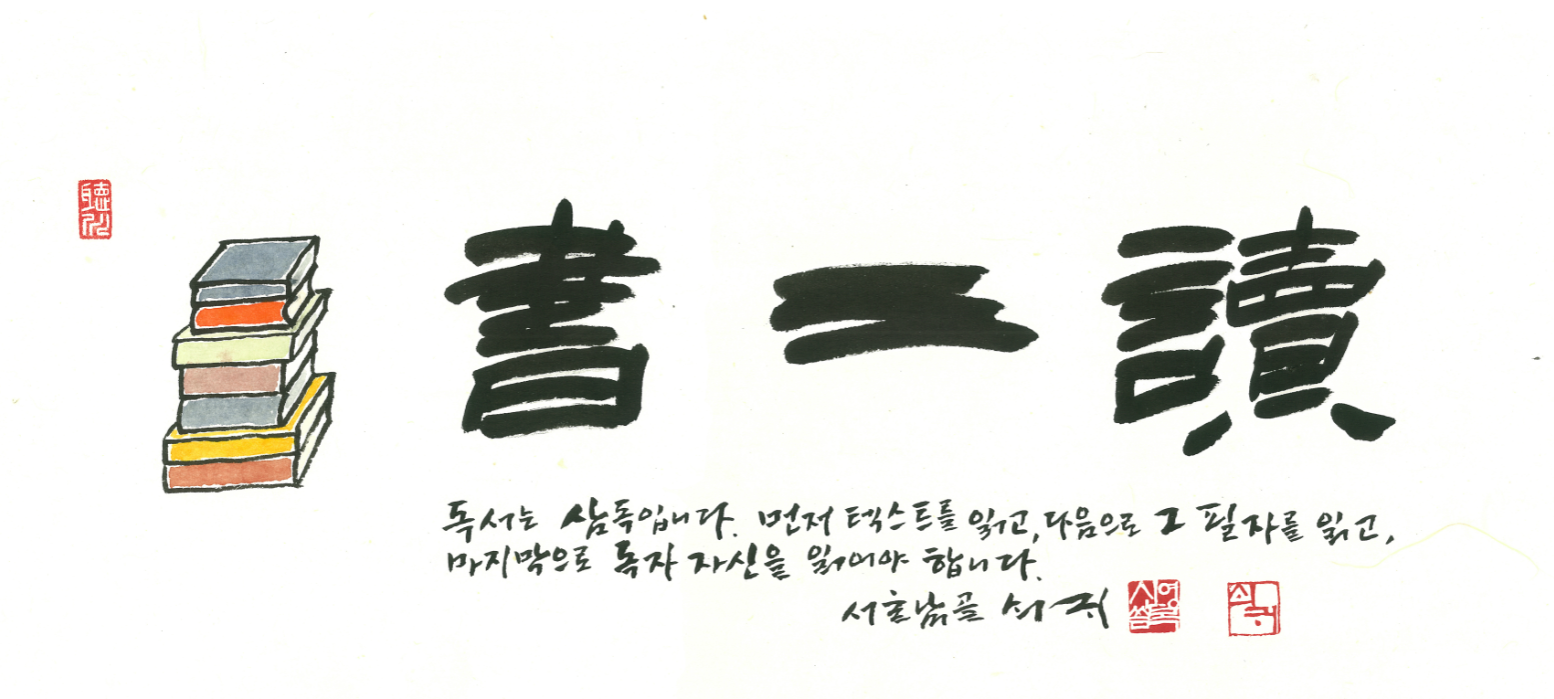 書三讀
독서는 삼독입니다. 먼저 텍스트를 읽고, 다음으로 그 필자를 읽고,
마지막으로 독자 자신을 읽어야 합니다.
쇠귀